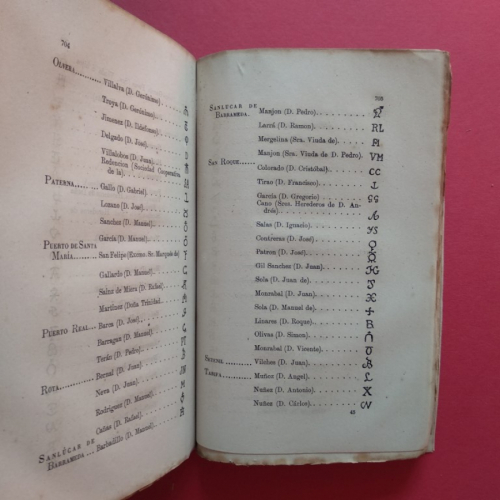 704
OLVERA. . . . . . . . . . Villalva (D. Gerónimo)
Troya (D. Gerónimo)
Jimenez (D. Ildefonso)
Delgado (D. José)
Villalobos (D. Juan)
Redencion (Sociedad Cooperativa
de la)
PATERNA. . . . . . . . . Gallo (D. Gabriel)
Lozano (D. José)
Sanchez (D. Manuel)
García (D. Manuel)
PUERTO DE SANTA
MARÍA. . . . . . . . . San Felipe (Excmo. Sr. Marqués de)
Gallardo (D. Manuel)
Sainz de Mora (D. Rafael)
Martinez (Doña Trinidad)
PUERTO REAL. . . . Barca (D. José)
Barragan (D. Manuel)
Derqui (D. Pedro)
ROTA. . . . . . . . . Bernal (D. Juan)
Neva (D. Manuel)
Rodriguez (D. Manuel)
Cañas (D. Rafael)
SANLÚCAR DE
BARRAMEDA. . . Barbadillo (D. Manuel)
705
SANLÚCAR DE
BARRAMEDA. Manjon (D. Pedro)
Larrá (D. Ramon) RL
Mergelina (Sra. Viuda de)
Manjon (Sra. Viuda de D. Pedro) VM
SAN ROQUE. . . . . . Colorado (D. Cristóbal) CC
Tirao (D. Francisco)
García (D. Gregorio)
Cano (Sres. Herederos de D. An-
drés)
Salas (D. Ignacio)
Contreras (D. José)
Patron (D. José)
Gil Sanchez (D. Juan)
Sola (D. Juan)
Monrabal (D. Juan)
Sola (D. Manuel de)
Linares (D. Roque)
Olivas (D. Simon)
Monrabal (D. Vicente)
Vilches (D. Juan)
TARIFA. . . . . . . . . Muñoz (D. Angel)
Nuñez (D. Antonio)
Nuñez (D. Cárlos)